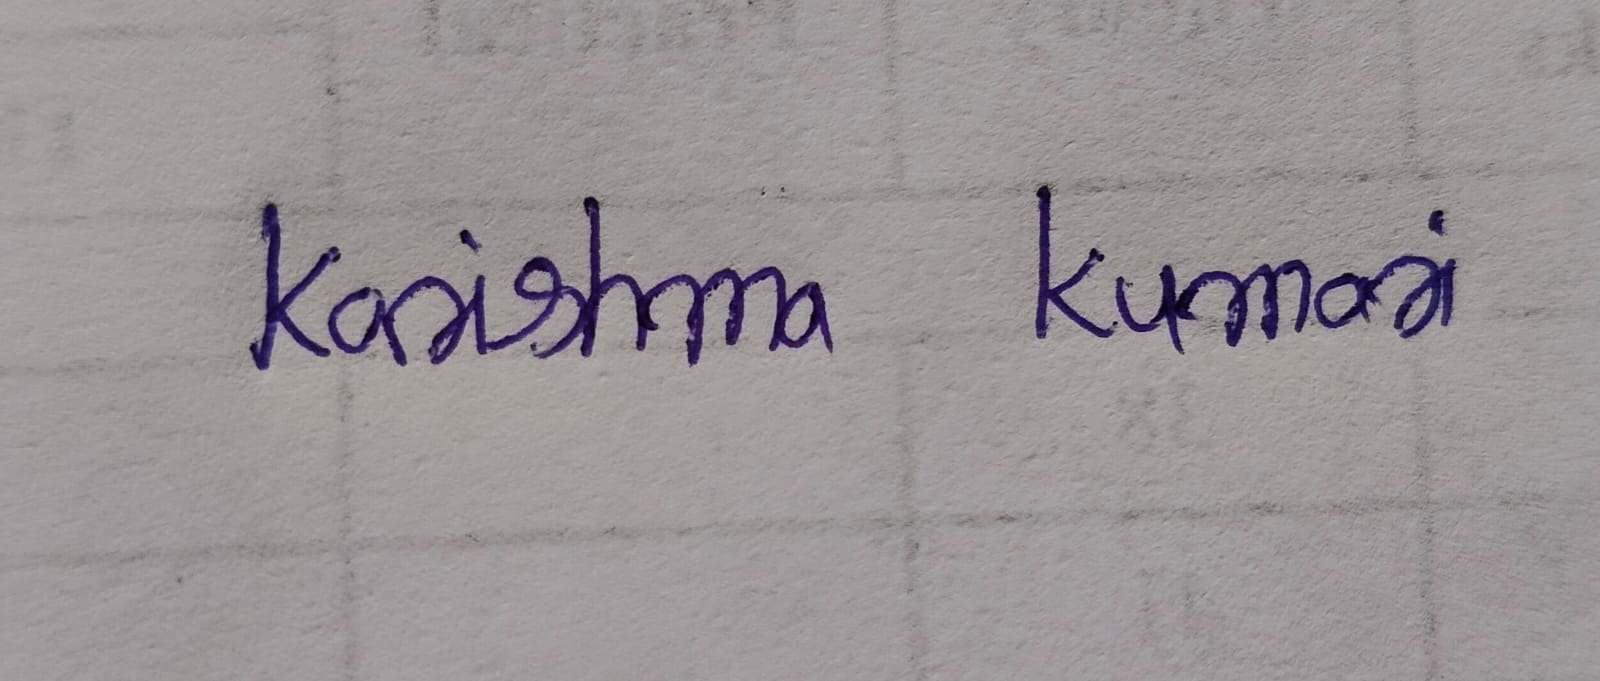 Karishma Kumari